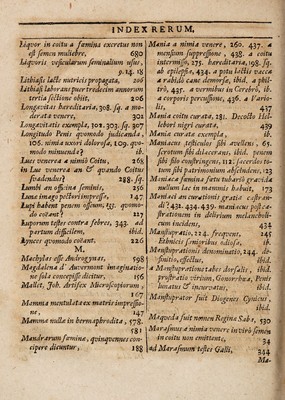 INDEX RERUM.
Liquor in coitu a fœmina excretus non
est semen muliebre, 680
Liquoris vesicularum seminalium usus,
9. 24. 18
Lithiasis lacte nutricis propagata, 206
Lithiasi laborans puer tredecim annorum
tertia sectione obiit, 206
Longævitas hæreditaria, 308. sq. a mo-
derata venere, 302
Longævitatis exempla, 102, 303. sq. 307
Longitudo Penis quomodo judicanda,
106. nimia uxori dolorosa, 109. quo-
modo minuenda? ib.
Lues venerea a nimio Coitu, 268
in Lue venerea an & quando Coitus
svadendus? 288. sq.
Lumbi an officina seminis, 256
Luna imago pectori impressa, 147
Lupi habent penem osseum, 153. quomo-
do coëant? 227
Luporum testes contra febres, 343. ad
partum difficilem, ibid.
Lynces quomodo coëant. 226
Machylas esse Androgynas, 598
Magdalena d'Auvermont imaginatio-
ne sola concepisse dicitur, 156
Mallet. Job. Artifex Microscopiorum,
167
Mamma mentulata ex matris impressio-
ne, 147
Mammæ nullæ in hermaphrodita, 578.
581
Mandrarum fœmina, quinquennes con-
cipere dicuntur, 188
Mania a nimia venere, 260. 437. a
mensium suppressione, 438. a coitu
intermisso, 175. hæreditaria, 198. sq.
ab epilepsia, 434. a potu lactis vacca
a rabido cane demorsæ, ibid. a phil-
tro, 435. a vermibus in Cerebro, ib.
a corporis percussione, 436. a Vario-
437
Mania coitu curata, 281. Decocto Hel-
lebori nigri curata, 439
Mania curata exempla, ib.
Maniacus testiculos sibi avulsit, 65.
scrotum sibi dilacerans, ibid. penem
sibi sibi confringens, 112. sacerdos to-
tum sibi patrimonium abscindens, 123
Maniaca fœmina sex tubarû gravida
nullum lac in mammis habuit, 173
Maniaci an curationis gratia castran-
di? 431. 434. 439. maniacus post ca-
strationem in delirium melancholi-
cum incidens, 434
Mansuprator, 224. frequens, 245
Ethnicis seminibus odiosa, ib.
Mansuprationis denominatio, 244. de-
finitio, effectus, ibid.
a Mansupratione tabes dorsalis, ibid.
prostatus virium, Gonorrhœa, Penis
luxatus & incurvatus, ibid.
Mansuprator fuit Diogenes Cynicus,
ibid.
Maqueda fuit nomen Reginæ Sabæ, 530
Marasmus a nimia venere in viro semen
in coitu non emittente, 34
ad Marasmum testes Galli, 344
Ma-